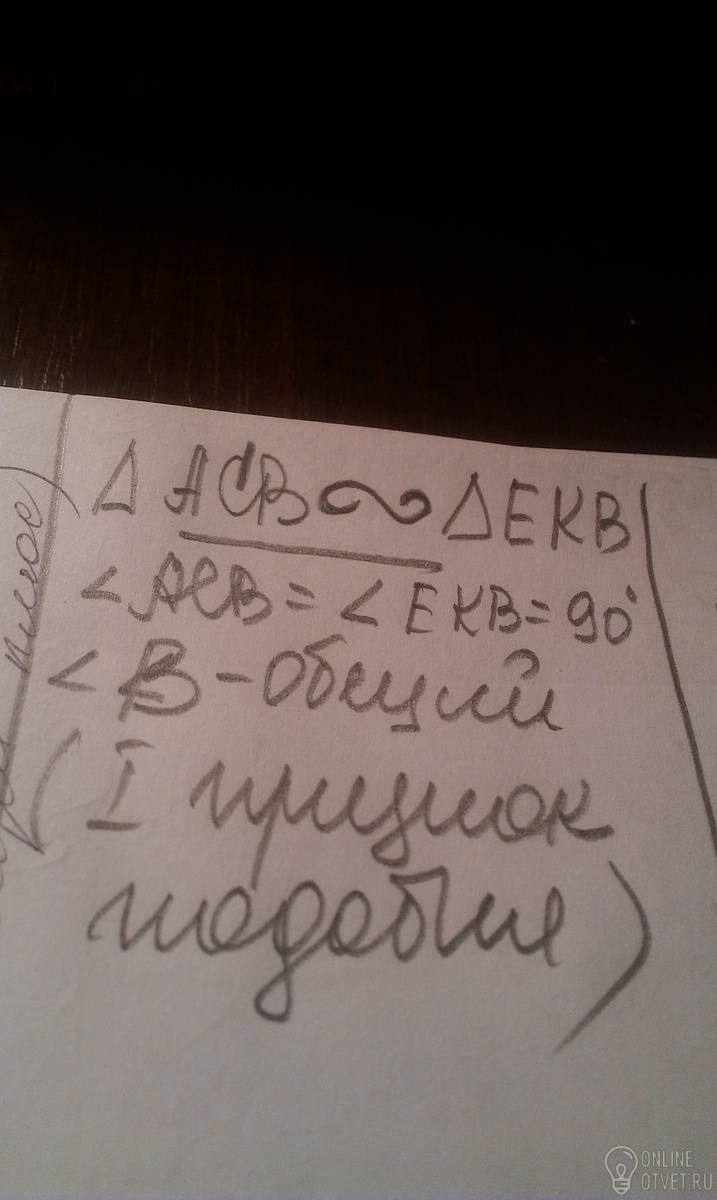 Δ ACB ∾ ΔEKB
<ACB = < EKB = 90°
< B - общий
( I признак
подобия )
ONLINE
OTVET.RU